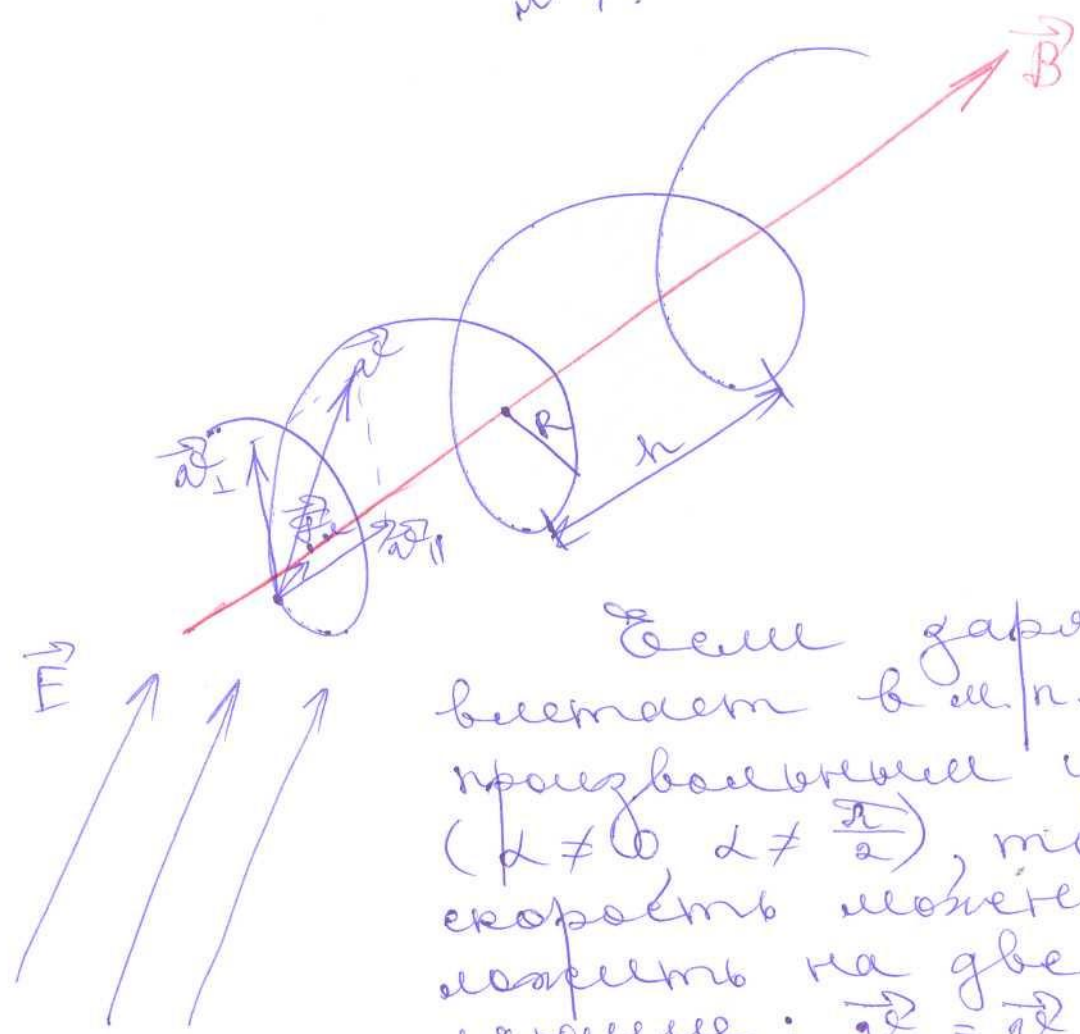 B⃗
v⃗
R
h
v⃗⊥
v⃗||
E⃗
Если заря
влетает в м. п.
произвольным
(α ≠ 0, α ≠ π/2), то
скорость можем
ложить на две